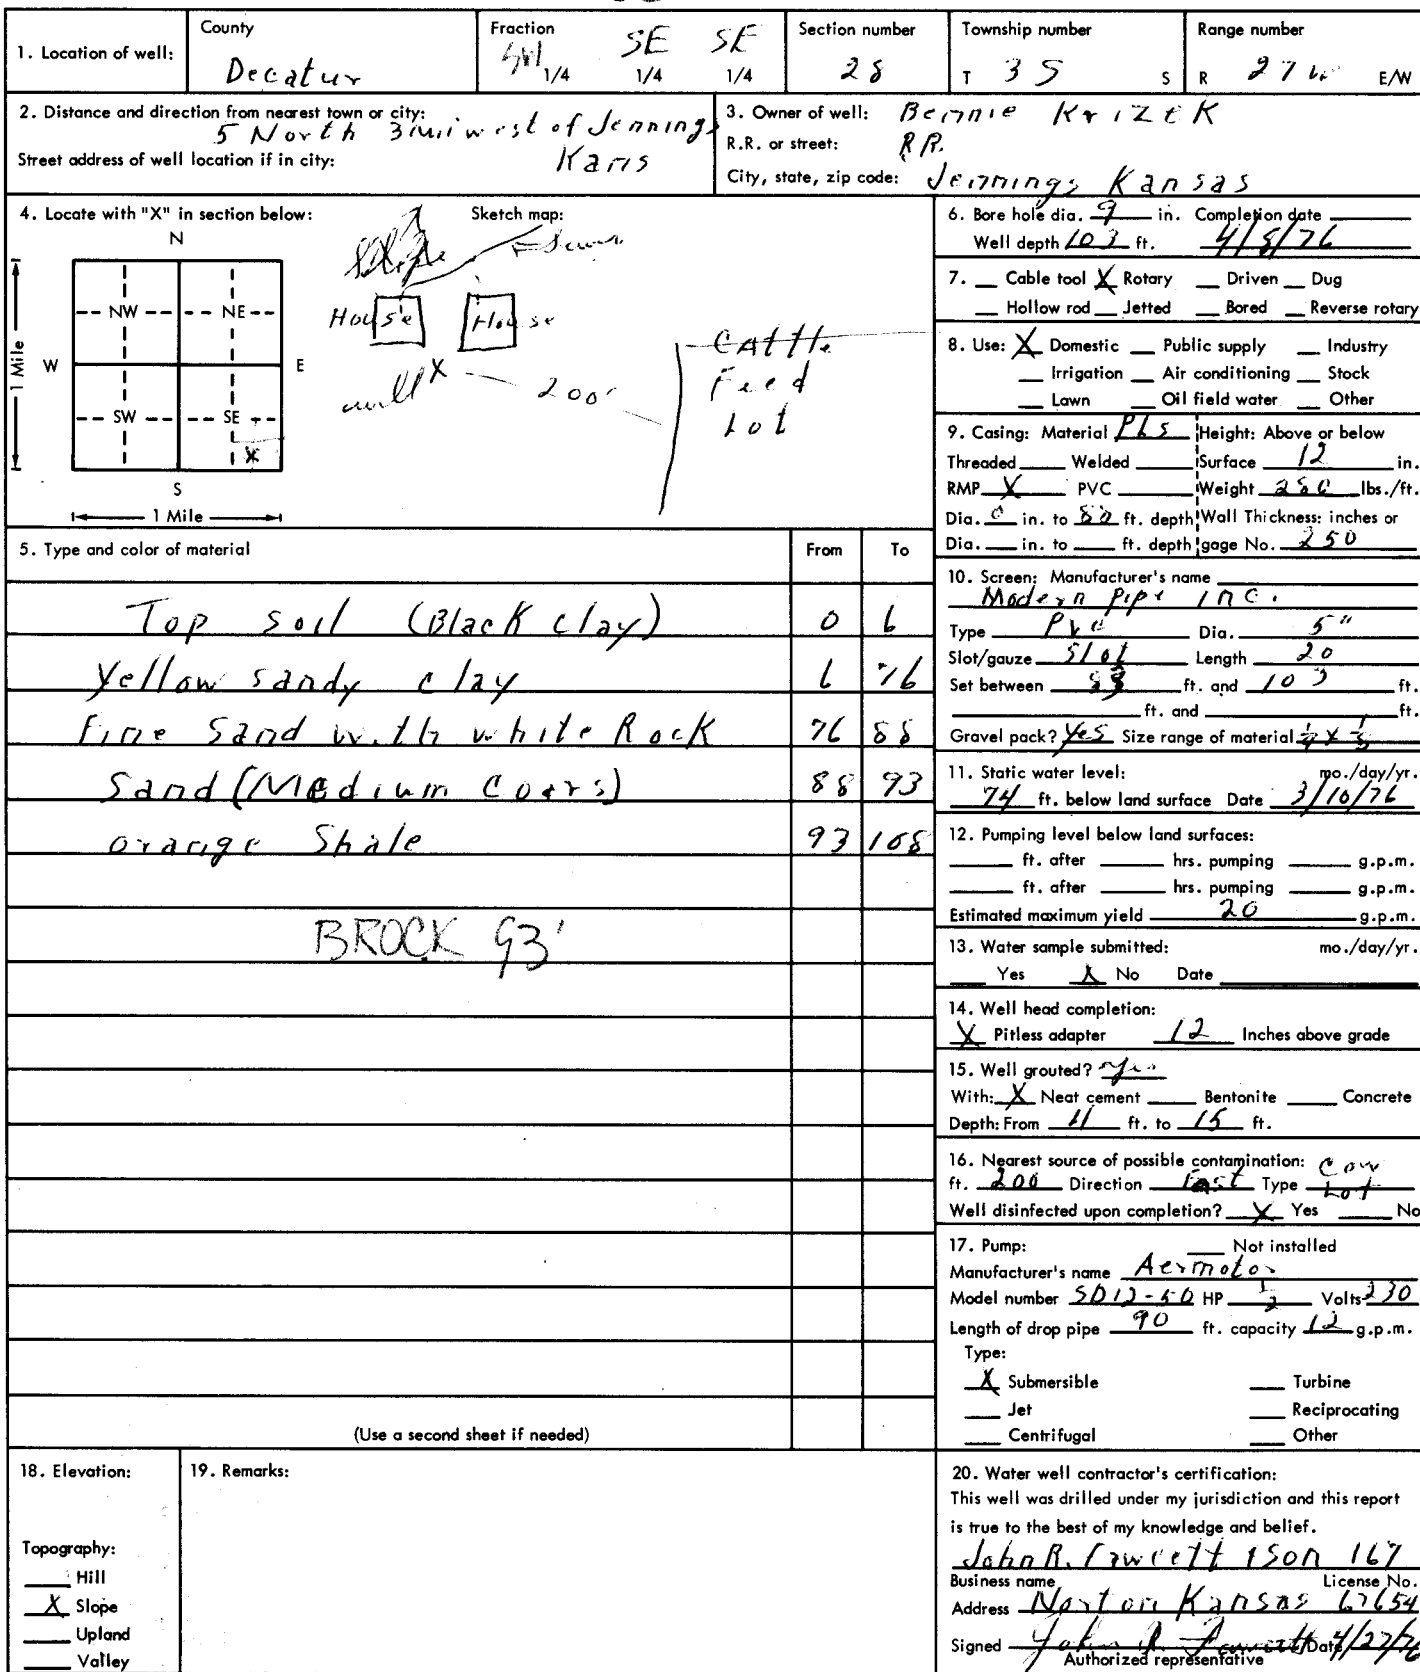 1. Location of well:
County
Decatur
Fraction
SW 1/4 SE 1/4 SE 1/4
Section number
28
Township number
T 3S S
Range number
R 27W E/W
2. Distance and direction from nearest town or city:
5 North 3mi west of Jennings
Kans
Street address of well location if in city:
3. Owner of well: Bennie Krizek
R.R. or street: RR.
City, state, zip code: Jennings Kansas
4. Locate with "X" in section below:
Sketch map:
N
NW NE
W E
SW SE
X
S
1 Mile
1 Mile
House House
well X 200'
Cattle
Feed
Lot
5. Type and color of material From To
Top soil (Black clay) 0 6
Yellow sandy clay 6 76
Fine Sand with white Rock 76 88
Sand (Medium Coars) 88 93
orange Shale 93 108
BROCK 93'
(Use a second sheet if needed)
6. Bore hole dia. 9 in. Completion date
Well depth 103 ft. 4/8/76
7. Cable tool X Rotary Driven Dug
Hollow rod Jetted Bored Reverse rotary
8. Use: X Domestic Public supply Industry
Irrigation Air conditioning Stock
Lawn Oil field water Other
9. Casing: Material Pls Height: Above or below
Threaded Welded Surface 12 in.
RMP X PVC Weight lbs./ft.
Dia. in. to ft. depth Wall Thickness: inches or
Dia. in. to ft. depth gage No. 250
10. Screen: Manufacturer's name
Modern Pipe INC.
Type PVC Dia. 5"
Slot/gauze Slot Length 20
Set between 83 ft. and 103 ft.
ft. and ft.
Gravel pack? Yes Size range of material
11. Static water level: mo./day/yr.
74 ft. below land surface Date 3/10/76
12. Pumping level below land surfaces:
ft. after hrs. pumping g.p.m.
ft. after hrs. pumping g.p.m.
Estimated maximum yield 20 g.p.m.
13. Water sample submitted: mo./day/yr.
Yes X No Date
14. Well head completion:
X Pitless adapter 12 Inches above grade
15. Well grouted? Yes
With: X Neat cement Bentonite Concrete
Depth: From ft. to 15 ft.
16. Nearest source of possible contamination: Cow
ft. 200 Direction East Type Lot
Well disinfected upon completion? X Yes No
17. Pump: Not installed
Manufacturer's name Aermotor
Model number SD12-50 HP 1/2 Volts 230
Length of drop pipe 90 ft. capacity 12 g.p.m.
Type:
X Submersible Turbine
Jet Reciprocating
Centrifugal Other
18. Elevation:
Topography:
Hill
X Slope
Upland
Valley
19. Remarks:
20. Water well contractor's certification:
This well was drilled under my jurisdiction and this report
is true to the best of my knowledge and belief.
John R. Fawcett & Son 167
Business name License No.
Address Norton Kansas 67654
Signed John R. Fawcett Date 4/27/76
Authorized representative